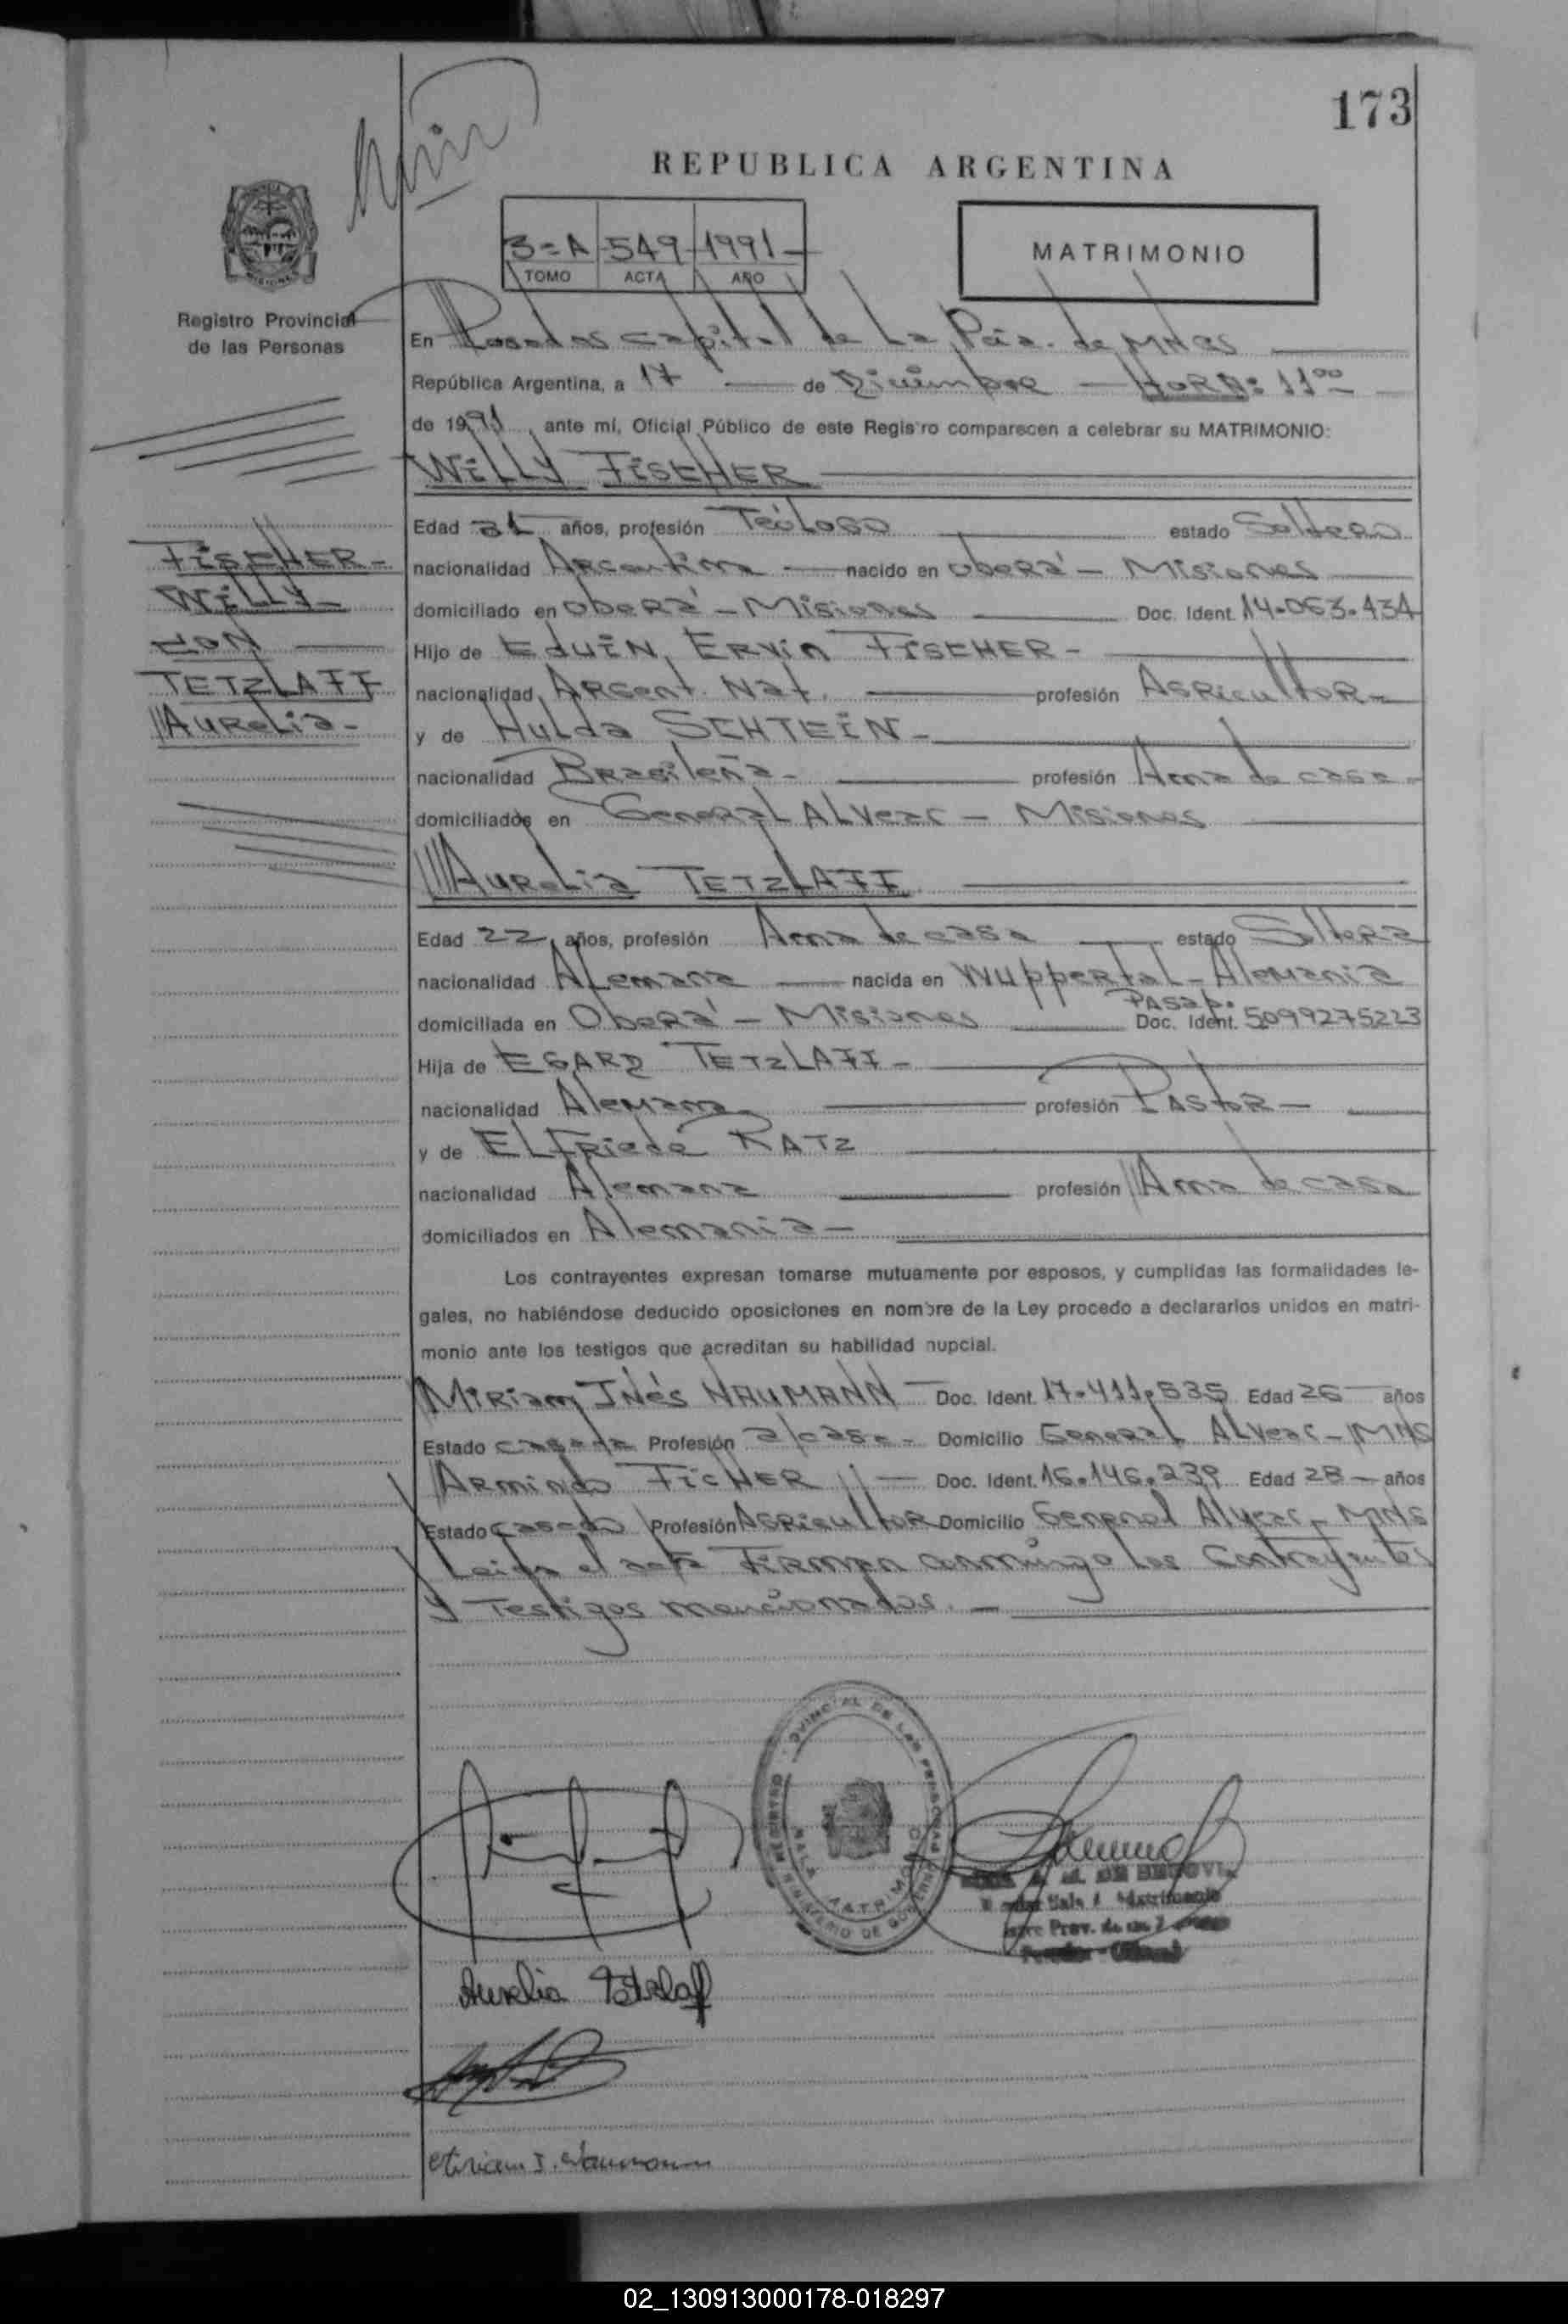 173
REPUBLICA ARGENTINA
3=A 549 1991
TOMO ACTA AÑO
MATRIMONIO
Registro Provincial
de las Personas
En Posadas capital de La Pcia. de MNES
República Argentina, a 17 de Diciembre - HORA: 11 00
de 1991, ante mí, Oficial Público de este Registro comparecen a celebrar su MATRIMONIO:
WILLY FISCHER
Edad 31 años, profesión Teólogo estado Soltero
nacionalidad Argentina nacido en Oberá - Misiones
domiciliado en Oberá - Misiones Doc. Ident. 14.063.434
Hijo de Eduin, Ervin FISCHER -
nacionalidad Argent. Nat. profesión Agricultor -
y de Hulda SCHTEIN -
nacionalidad Brasileña - profesión Ama de casa -
domiciliados en General Alvear - Misiones
Aurelia TETZLAFF
Edad 22 años, profesión Ama de casa estado Soltera
nacionalidad Alemana nacida en Wuppertal - Alemania
Pasap.
domiciliada en Oberá - Misiones Doc. Ident. 5099275223
Hija de EGARD TETZLAFF -
nacionalidad Alemana profesión Pastor -
y de ELFriede RATZ
nacionalidad Alemana profesión Ama de casa
domiciliados en Alemania -
Los contrayentes expresan tomarse mutuamente por esposos, y cumplidas las formalidades le-
gales, no habiéndose deducido oposiciones en nombre de la Ley procedo a declararlos unidos en matri-
monio ante los testigos que acreditan su habilidad nupcial.
Miriam Inés NAUMANN - Doc. Ident. 17.411.535 Edad 26 años
Estado casada Profesión a/casa - Domicilio General Alvear - MNES
Armindo FICHER - Doc. Ident. 16.146.239 Edad 28 - años
Estado casado Profesión Agricultor Domicilio General Alvear - MNES
Leida el acta Firman conmigo los Contrayentes
y Testigos mencionados. -
FISCHER -
WILLY -
CON
TETZLAFF
Aurelia -
REGISTRO PROVINCIAL DE LAS PERSONAS
SALA MATRIMONIO
MINISTERIO DE GOBIERNO
Aurelia Tetzlaff
Miriam I. Naumann
02_130913000178-018297